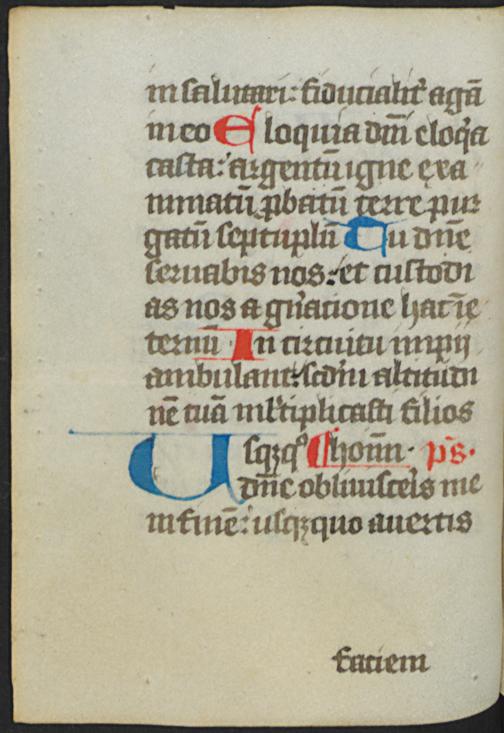 in salutari: fiducialit᷑ agā
in eo Eloquia dn̄i eloq̄a
casta: argentū igne exa
minatū ꝓbatū terre pur
gatū septuplū Tu dn̄e
seruabis nos: et custodi
as nos a gn̄atione hac ī e
ternū In circuitu impij
ambulant: scdm altitudi
nē tuā ml̄tiplicasti filios
Usqꝫqͦ ¶ homn̄. p̄s.
dn̄e obliuisceris me
in finē: usqꝫquo auertis
faciem